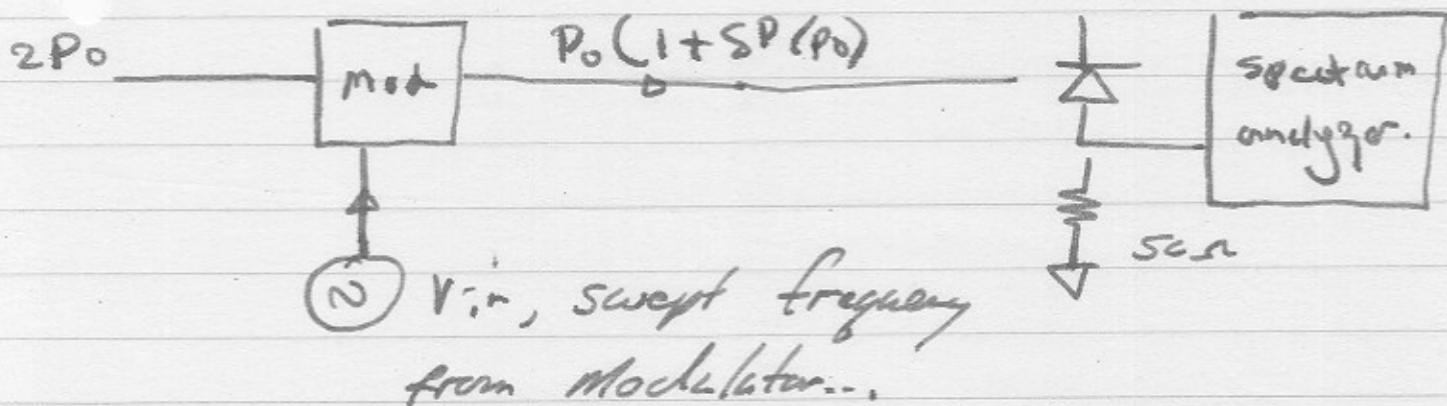 2P₀
Mod
P₀(1+δP(P₀)
Spectrum
analyzer.
50Ω
Vin, swept frequency
from Modulator...